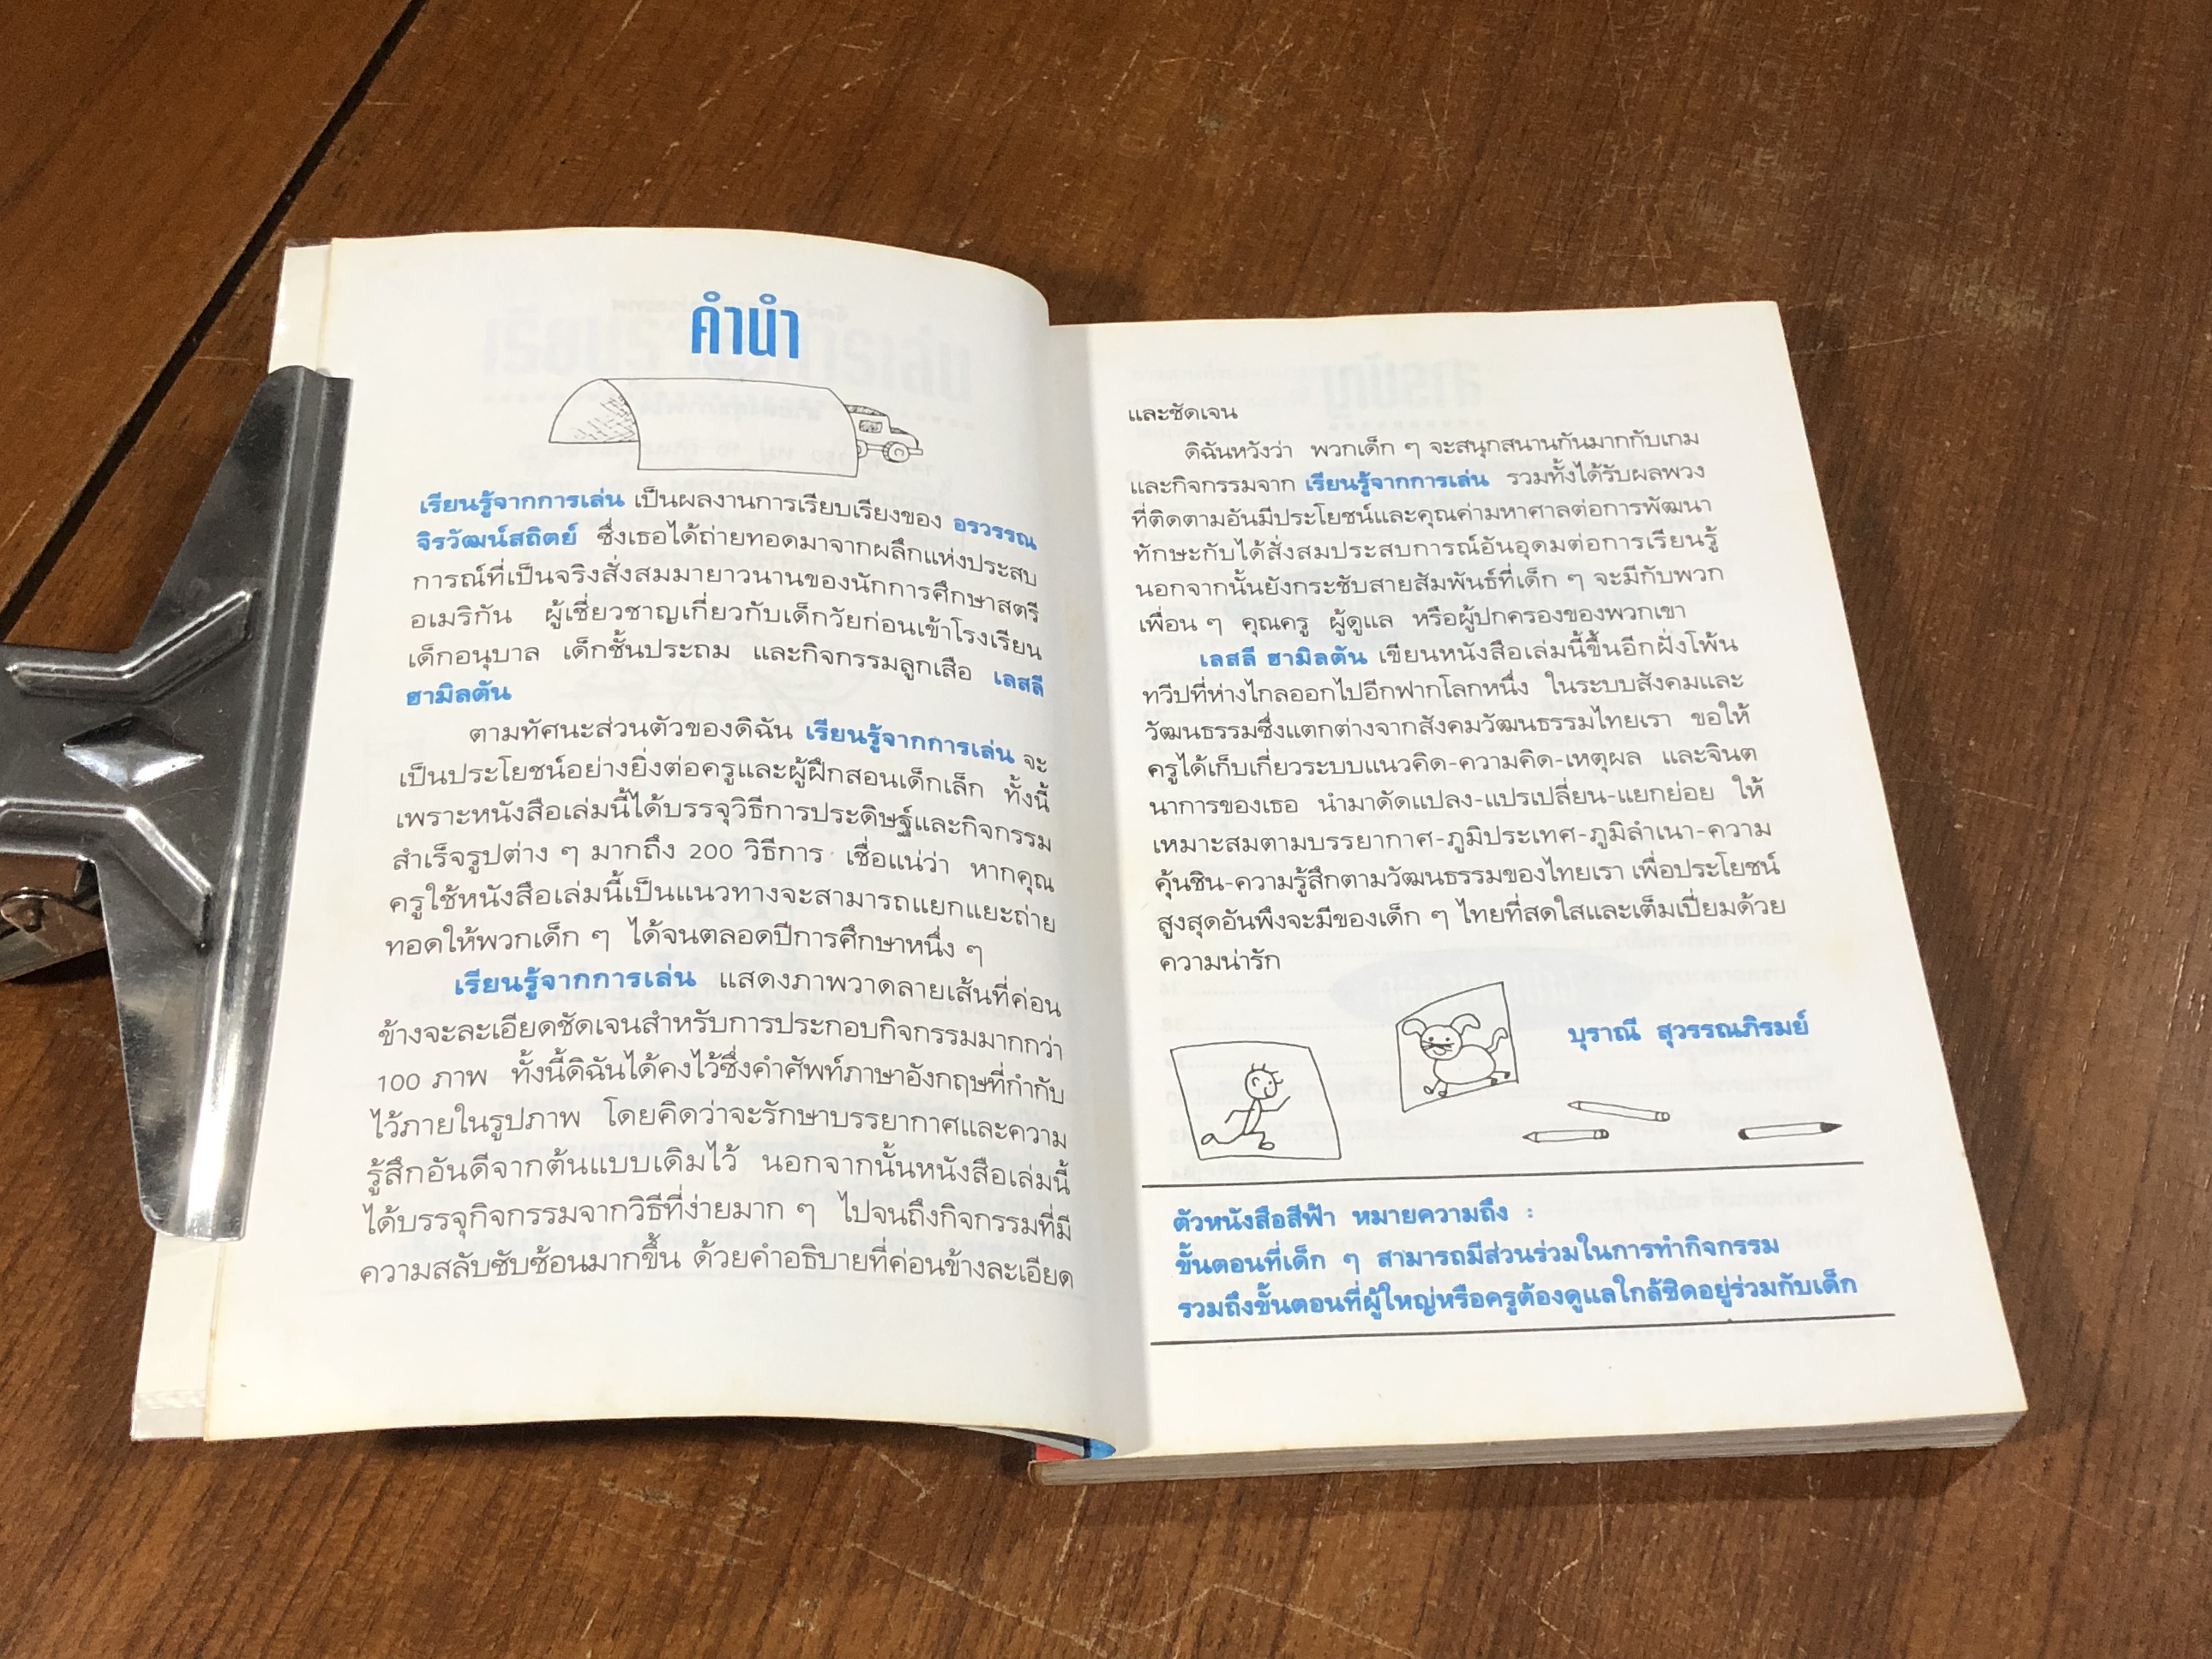 คำนำ
เรียนรู้จากการเล่น เป็นผลงานการเรียบเรียงของ อรวรรณ
จิรวัฒน์สถิตย์ ซึ่งเธอได้ถ่ายทอดมาจากผลึกแห่งประสบ
การณ์ที่เป็นจริงสั่งสมมายาวนานของนักการศึกษาสตรี
อเมริกัน ผู้เชี่ยวชาญเกี่ยวกับเด็กวัยก่อนเข้าโรงเรียน
เด็กอนุบาล เด็กชั้นประถม และกิจกรรมลูกเสือ เลสลี
ฮามิลตัน
ตามทัศนะส่วนตัวของดิฉัน เรียนรู้จากการเล่น จะ
เป็นประโยชน์อย่างยิ่งต่อครูและผู้ฝึกสอนเด็กเล็ก ทั้งนี้
เพราะหนังสือเล่มนี้ได้บรรจุวิธีการประดิษฐ์และกิจกรรม
สำเร็จรูปต่าง ๆ มากถึง 200 วิธีการ เชื่อแน่ว่า หากคุณ
ครูใช้หนังสือเล่มนี้เป็นแนวทางจะสามารถแยกแยะถ่าย
ทอดให้พวกเด็ก ๆ ได้จนตลอดปีการศึกษาหนึ่ง ๆ
เรียนรู้จากการเล่น แสดงภาพวาดลายเส้นที่ค่อน
ข้างจะละเอียดชัดเจนสำหรับการประกอบกิจกรรมมากกว่า
100 ภาพ ทั้งนี้ดิฉันได้คงไว้ซึ่งคำศัพท์ภาษาอังกฤษที่กำกับ
ไว้ภายในรูปภาพ โดยคิดว่าจะรักษาบรรยากาศและความ
รู้สึกอันดีจากต้นแบบเดิมไว้ นอกจากนั้นหนังสือเล่มนี้
ได้บรรจุกิจกรรมจากวิธีที่ง่ายมาก ๆ ไปจนถึงกิจกรรมที่มี
ความสลับซับซ้อนมากขึ้น ด้วยคำอธิบายที่ค่อนข้างละเอียด
และชัดเจน
ดิฉันหวังว่า พวกเด็ก ๆ จะสนุกสนานกันมากกับเกม
และกิจกรรมจาก เรียนรู้จากการเล่น รวมทั้งได้รับผลพวง
ที่ติดตามอันมีประโยชน์และคุณค่ามหาศาลต่อการพัฒนา
ทักษะกับได้สั่งสมประสบการณ์อันอุดมต่อการเรียนรู้
นอกจากนั้นยังกระชับสายสัมพันธ์ที่เด็ก ๆ จะมีกับพวก
เพื่อน ๆ คุณครู ผู้ดูแล หรือผู้ปกครองของพวกเขา
เลสลี ฮามิลตัน เขียนหนังสือเล่มนี้ขึ้นอีกฝั่งโพ้น
ทวีปที่ห่างไกลออกไปอีกฟากโลกหนึ่ง ในระบบสังคมและ
วัฒนธรรมซึ่งแตกต่างจากสังคมวัฒนธรรมไทยเรา ขอให้
ครูได้เก็บเกี่ยวระบบแนวคิด-ความคิด-เหตุผล และจินต
นาการของเธอ นำมาดัดแปลง-แปรเปลี่ยน-แยกย่อย ให้
เหมาะสมตามบรรยากาศ-ภูมิประเทศ-ภูมิลำเนา-ความ
คุ้นชิน-ความรู้สึกตามวัฒนธรรมของไทยเรา เพื่อประโยชน์
สูงสุดอันพึงจะมีของเด็ก ๆ ไทยที่สดใสและเต็มเปี่ยมด้วย
ความน่ารัก
บุราณี สุวรรณภิรมย์
ตัวหนังสือสีฟ้า หมายความถึง :
ขั้นตอนที่เด็ก ๆ สามารถมีส่วนร่วมในการทำกิจกรรม
รวมถึงขั้นตอนที่ผู้ใหญ่หรือครูต้องดูแลใกล้ชิดอยู่ร่วมกับเด็ก